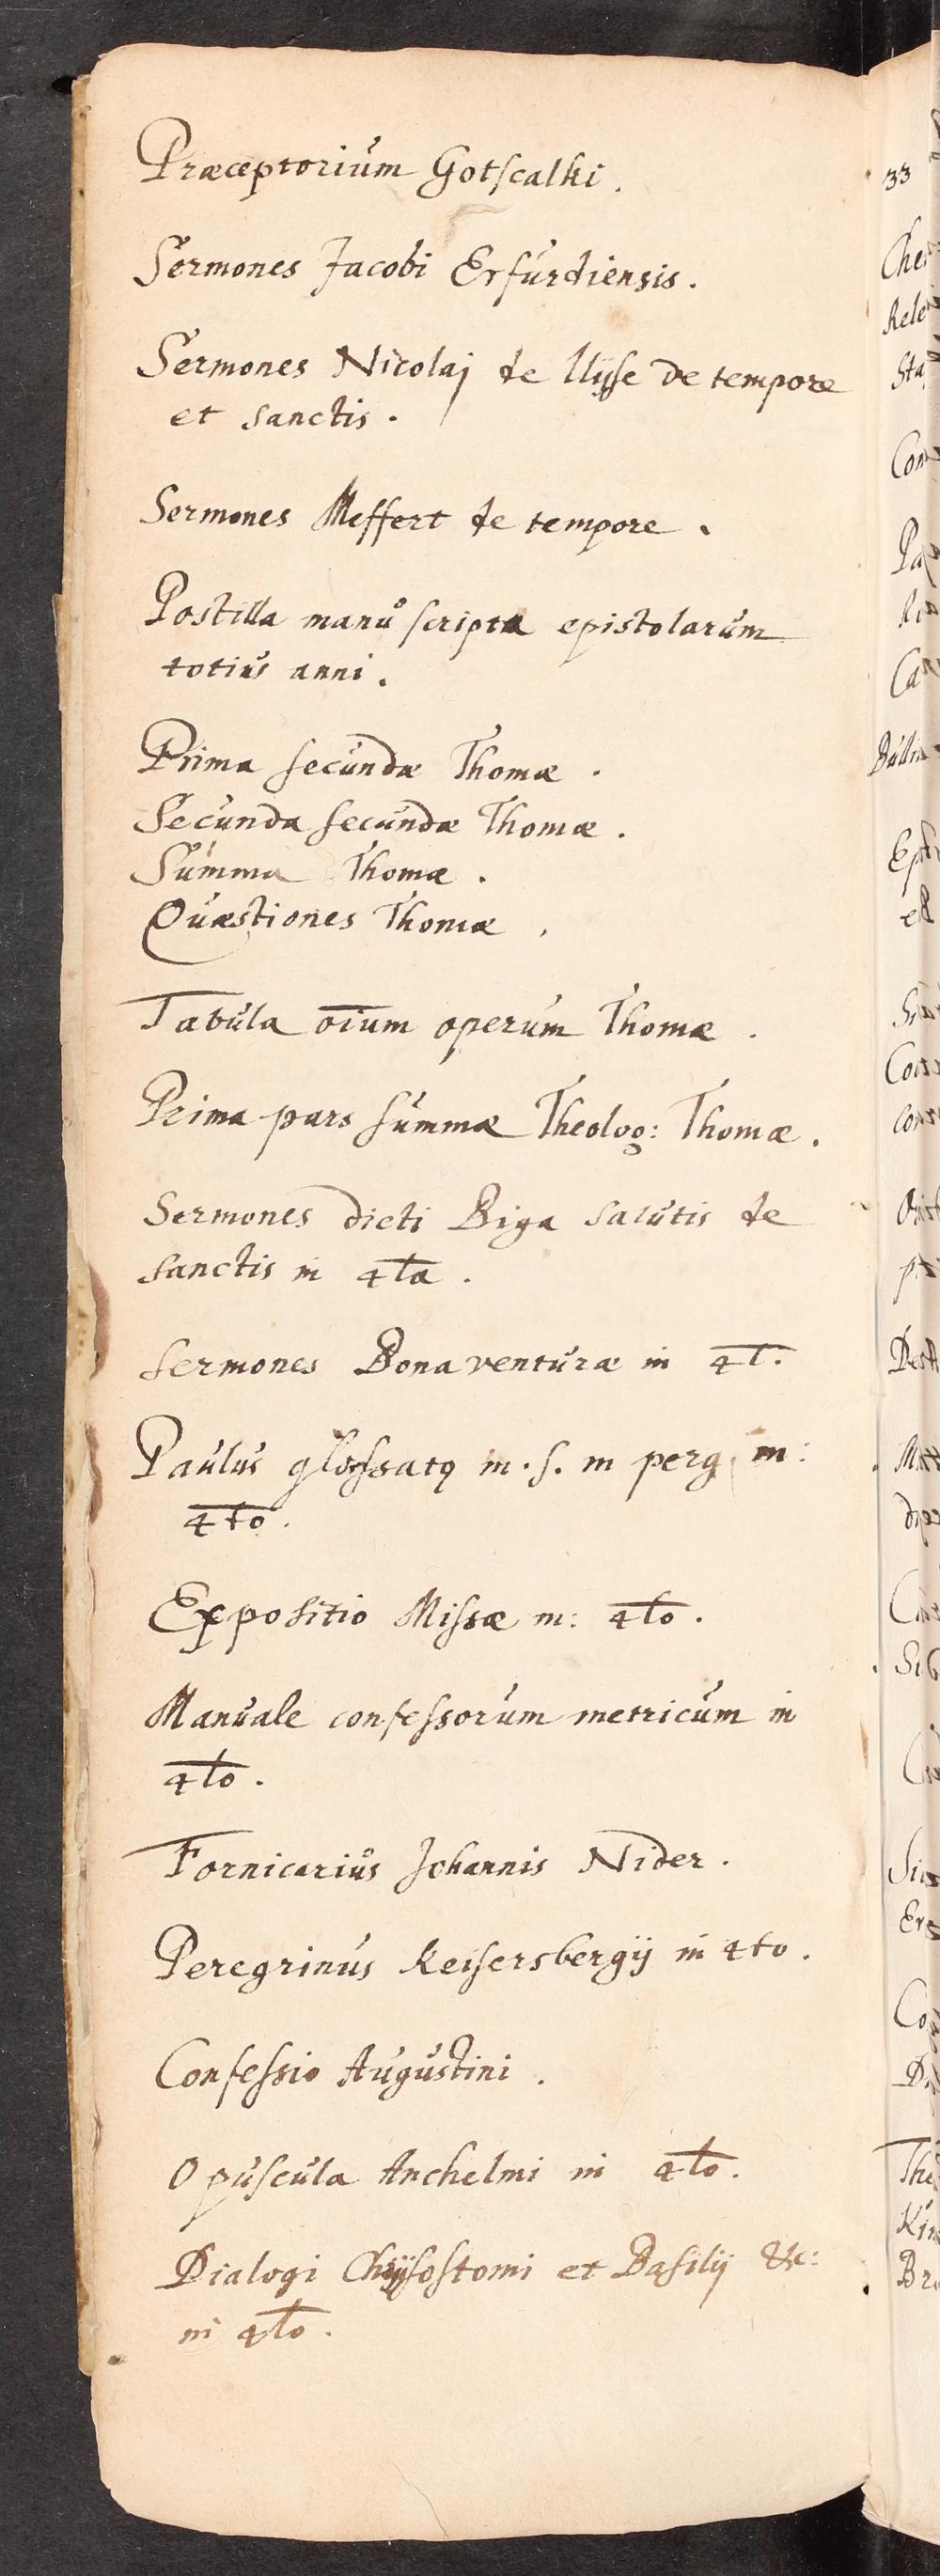 Præceptorium Gotscalki.
Sermones Jacobi Erfurdiensis.
Sermones Nicolaj de llÿse de tempore
et sanctis.
Sermones Meffert de tempore.
Postilla manu scripta epistolarum
totius anni.
Prima secundæ Thomæ.
Secunda secundæ Thomæ.
Summa Thomæ.
Quæstiones Thomæ.
Tabula oium operum Thomæ.
Prima pars summæ Theolog: Thomæ.
Sermones dicti Biga salutis de
sanctis in 4ta.
Sermones Bonaventuræ in 4t.
Paulus glossatq m.s. in perg in:
4to.
Expositio Missæ in: 4to.
Manuale confessorum metricum in
4to.
Fornicarius Johannis Nider.
Peregrinus Keisersbergij in 4to.
Confessio Augustini.
Opuscula Anchelmi in 4to.
Dialogi Chrÿsostomi et Basilij &c:
in 4to.
33